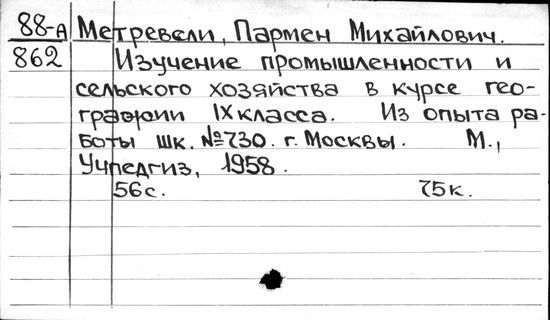 88-А Метревели, Пармен Михайлович.
862 Изучение промышленности и
сельского хозяйства в курсе гео-
графии IX класса. Из опыта ра-
боты шк. №730. г. Москвы. М.,
Учпедгиз, 1958.
56с. 75к.